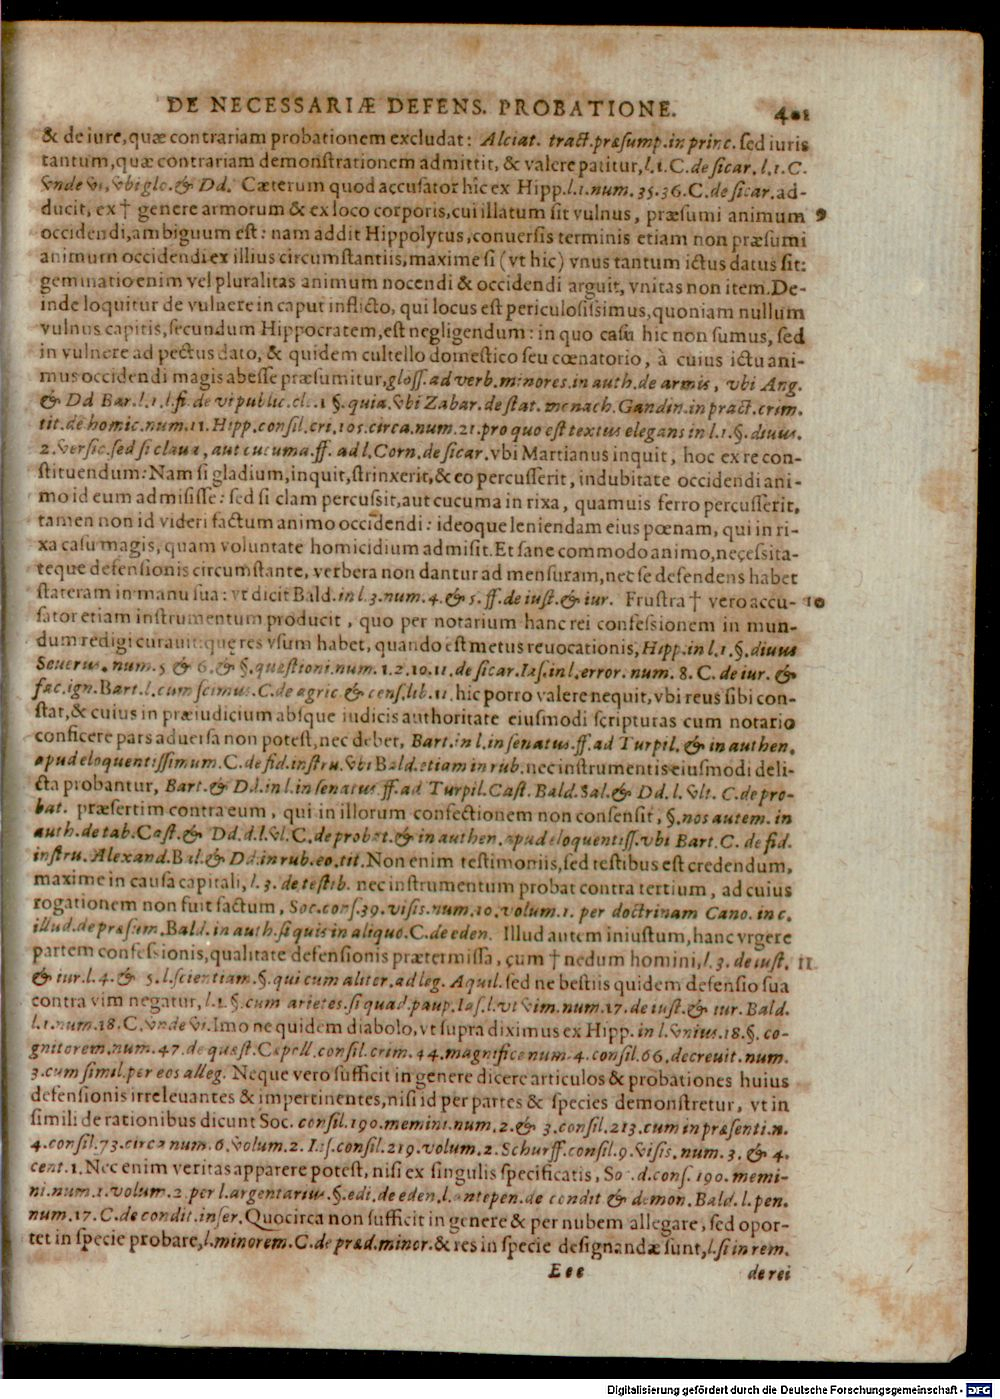 DE NECESSARIÆ DEFENS. PROBATIONE. 401
& de iure, quæ contrariam probationem excludat: Alciat. tract. præsump. in princ. sed iuris
tantum, quæ contrariam demonstrationem admittit, & valere patitur, l. 1. C. de sicar. l. 1. C.
vnde vi, vbi glo. & Dd. Cæterum quod accusator hic ex Hipp. l. 1. num. 35. 36. C. de sicar. ad-
ducit, ex † genere armorum & ex loco corporis, cui illatum sit vulnus, præsumi animum 9
occidendi, ambiguum est: nam addit Hippolytus, conuersis terminis etiam non præsumi
animum occidendi ex illius circumstantiis, maxime si (vt hic) vnus tantum ictus datus sit:
geminatio enim vel pluralitas animum nocendi & occidendi arguit, vnitas non item. De-
inde loquitur de vulnere in caput inflicto, qui locus est periculosissimus, quoniam nullum
vulnus capitis, secundum Hippocratem, est negligendum: in quo casu hic non sumus, sed
in vulnere ad pectus dato, & quidem cultello domestico seu cœnatorio, à cuius ictu ani-
mus occidendi magis abesse præsumitur, gloss. ad verb. minores. in auth. de armis, vbi Ang.
& Dd Bar. l. 1. l. fi. de vi public. cle. 1 §. quia. vbi Zabar. de stat. monach. Gandin. in pract. crim.
tit. de homic. num. 11. Hipp. consil. cri. 105. circa. num. 21. pro quo est textus elegans in l. 1. §. diuus.
2. versic. sed si claua, aut cucuma. ff. ad l. Corn. de sicar. vbi Martianus inquit, hoc ex re con-
stituendum: Nam si gladium, inquit, strinxerit, & eo percusserit, indubitate occidendi ani-
mo id eum admisisse: sed si clam percussit, aut cucuma in rixa, quamuis ferro percusserit,
tamen non id videri factum animo occidendi: ideoque leniendam eius pœnam, qui in ri-
xa casu magis, quam voluntate homicidium admisit. Et sane commodo animo, necessita-
teque defensionis circumstante, verbera non dantur ad mensuram, nec se defendens habet
stateram in manu sua: vt dicit Bald. in l. 3. num. 4. & 5. ff. de iust. & iur. Frustra † vero accu- 10
sator etiam instrumentum producit, quo per notarium hanc rei confessionem in mun-
dum redigi curauit: que res vsum habet, quando est metus reuocationis, Hipp. in l. 1. §. diuus
Seuerus. num. 5 & 6. & §. quæstioni. num. 1. 2. 10. 11. de sicar. Ias. in l. error. num. 8. C. de iur. &
fac. ign. Bart. l. cum scimus. C. de agric. & cens. lib. 11. hic porro valere nequit, vbi reus sibi con-
stat, & cuius in præiudicium absque iudicis authoritate eiusmodi scripturas cum notario
conficere pars aduersa non potest, nec debet, Bart. in l. in senatus. ff. ad Turpil. & in authen.
apud eloquentissimum. C. de fid. instru. vbi Bald. etiam in rub. nec instrumentis eiusmodi deli-
cta probantur, Bart. & Dd. in l. in senatus ff. ad Turpil. Cast. Bald. Sal. & Dd. l. vlt. C. de pro-
bat. præsertim contra eum, qui in illorum confectionem non consensit, §. nos autem. in
auth. de tab. Cast. & Dd. d. l. vl. C. de probat. & in authen. apud eloquentiss. vbi Bart. C. de fid.
instru. Alexand. Bal. & Dd. in rub. eo. tit. Non enim testimoniis, sed testibus est credendum,
maxime in causa capitali, l. 3. de testib. nec instrumentum probat contra tertium, ad cuius
rogationem non fuit factum, Soc. cons. 39. visis. num. 10. volum. 1. per doctrinam Cano. in c.
illud. de præsum. Bald. in auth. si quis in aliquo. C. de eden. Illud autem iniustum, hanc vrgere
partem confessionis, qualitate defensionis prætermissa, cum † nedum homini, l. 3. de iust. 11
& iur. l. 4. & 5. l. scientiam. §. qui cum aliter. ad leg. Aquil. sed ne bestiis quidem defensio sua
contra vim negatur, l. 1. §. cum arietes. si quad. paup. Ias. l. vt vim. num. 17. de iust. & iur. Bald.
l. 1. num. 18. C. vnde vi. Imo ne quidem diabolo, vt supra diximus ex Hipp. in l. vnius. 18. §. co-
gnitorem. num. 47. de quæst. Capell. consil. crim. 44. magnifice num. 4. consil. 66. decreuit. num.
3. cum simil. per eos alleg. Neque vero sufficit in genere dicere articulos & probationes huius
defensionis irreleuantes & impertinentes, nisi id per partes & species demonstretur, vt in
simili de rationibus dicunt Soc. consil. 190. memini. num. 2. & 3. consil. 213. cum in præsenti. n.
4. consil. 73. circa num. 6. volum. 2. Ias. consil. 219. volum. 2. Schurff. consil. 9. visis. num. 3. & 4.
cent. 1. Nec enim veritas apparere potest, nisi ex singulis specificatis, Soc. d. cons. 190. memi-
ni. num. 1. volum. 2 per l. argentarius. §. edi. de eden. l. antepen. de condit & demon. Bald. l. pen.
num. 17. C. de condit. inser. Quocirca non sufficit in genere & per nubem allegare, sed opor-
tet in specie probare, l. minorem. C. de præd. minor. & res in specie designandæ sunt, l. si in rem.
Eee de rei
Digitalisierung gefördert durch die Deutsche Forschungsgemeinschaft - DFG